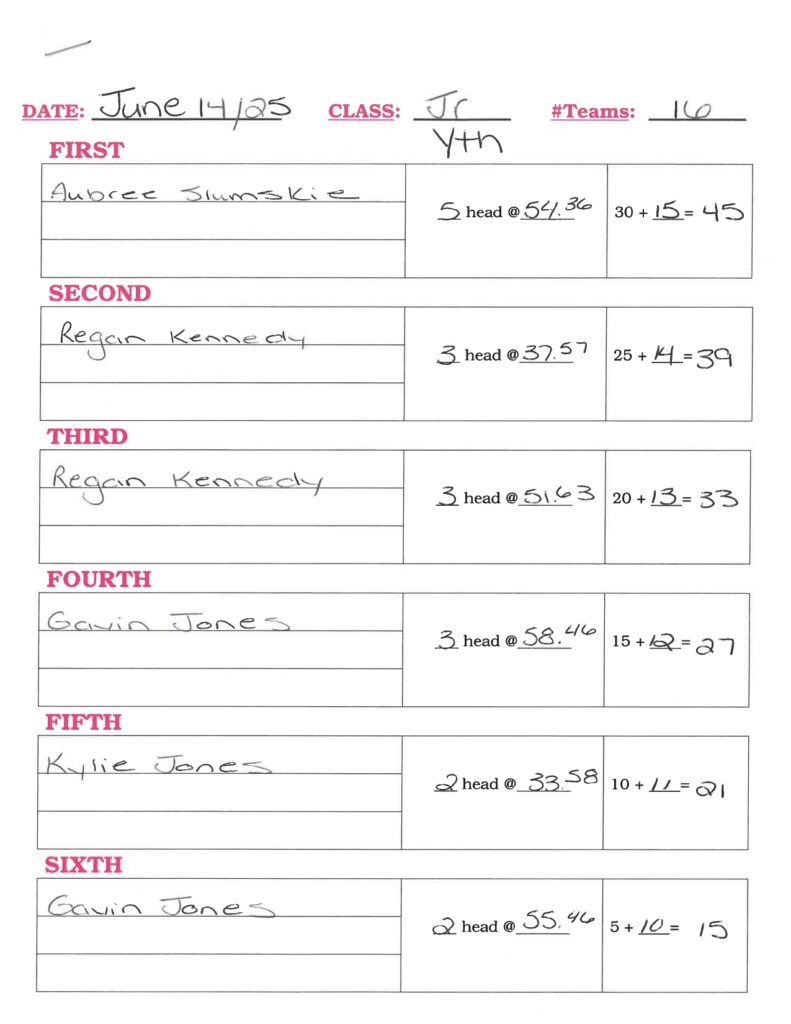 DATE: June 14/25 CLASS: Jr #Teams: 16
Yth
FIRST
Aubree Slumskie
5 head @ 54.36 30 + 15 = 45
SECOND
Regan Kennedy
3 head @ 37.57 25 + 14 = 39
THIRD
Regan Kennedy
3 head @ 51.63 20 + 13 = 33
FOURTH
Gavin Jones
3 head @ 58.46 15 + 12 = 27
FIFTH
Kylie Jones
2 head @ 33.58 10 + 11 = 21
SIXTH
Gavin Jones
2 head @ 55.46 5 + 10 = 15